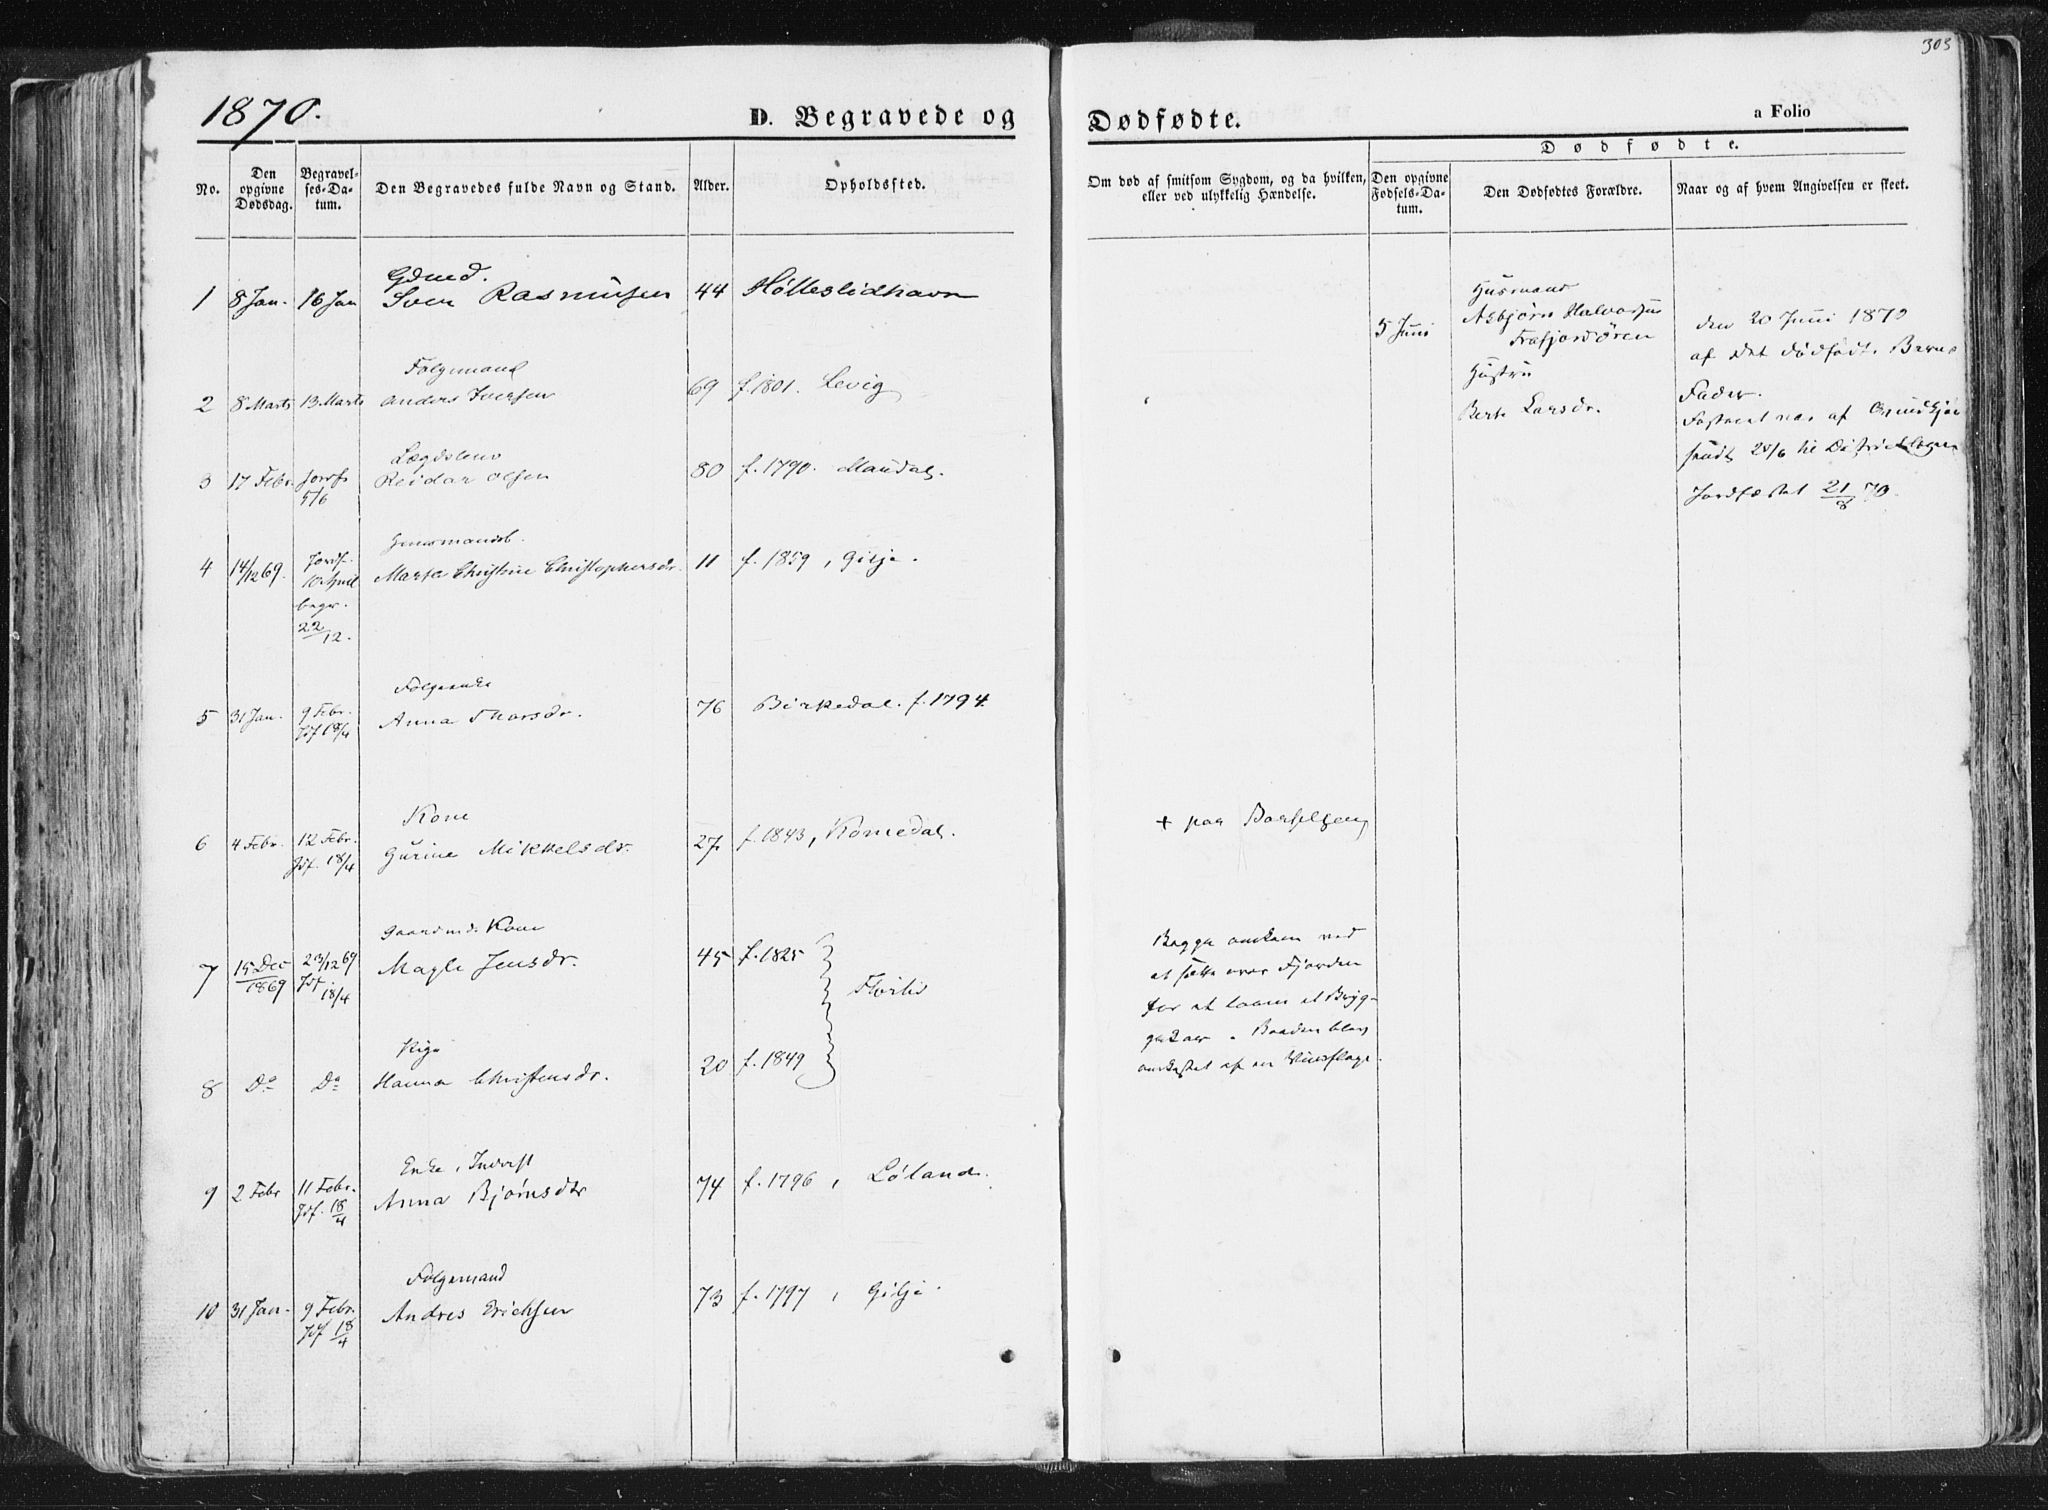 303
1870.
D. Begravede og Dødfødte.
a Folio
No.
Den opgivne Dødsdag.
Begravelses-Datum.
Den Begravedes fulde Navn og Stand.
Alder.
Opholdssted.
Om død af smitsom Sygdom, og da hvilken, eller ved ulykkelig Hændelse.
Dødfødte.
Den opgivne Fødsels-Datum.
Den Dødfødtes Forældre.
Naar og af hvem Angivelsen er skeet.
Gdmd.
1 8 Jan. 16 Jan Sven Rasmusen 44 Hølleslidhavn
5 Juni
Husmand
Asbjørn Halvorsen
Frafjordøren
Hustru
Berte Larsdr.
den 20 Juni 1870
af det dødfødt. Barns
Fader.
sendt 28/6 til Districtslægen
Jordfæstet 21/8 70.
Folgemand
2 8 Marts 13 Marts Anders Iversen 69 f. 1801. Levig
Lægdslem
3 17 Febr. Jordf. 5/6 Reidar Olsen 80 f. 1790. Maudal.
4 14/12 69. Jordf. 10 April begr. 22/12. Marta Christine Christophersdr. 11 f. 1859, Gilje.
Folgeenke
5 31 Jan. 9 Febr. Jdf 18/4 Anna Thorsdr. 76 Birkedal. f. 1794
Kone
6 4 Febr. 12 Febr. Jdf. 18/4 Gurine Mikkelsdr. 27. f. 1843, Rømedal.
+ paa Barselseng
Gaardmds Kone
7 15 Dec 1869 23/12 69 Jdf 18/4 Magle Jensdr. 45 f. 1825
Flørlis
Begge omkom ved
at sætte over Fjorden
for at laane et Bryg-
gekar. Baaden blev
omkastet af en Vindflage.
Pige
8 Do Do Hanna Christensdr. 20 f. 1849
Enke, Inderst
9 2 Febr 11 Febr. Jdf. 18/4 Anna Bjørnsdtr 74 f. 1796, Løland.
Folgemand
10 31 Jan. 9 Febr. Jdf 18/4 Andres Erichsen 73 f. 1797, Gilje.